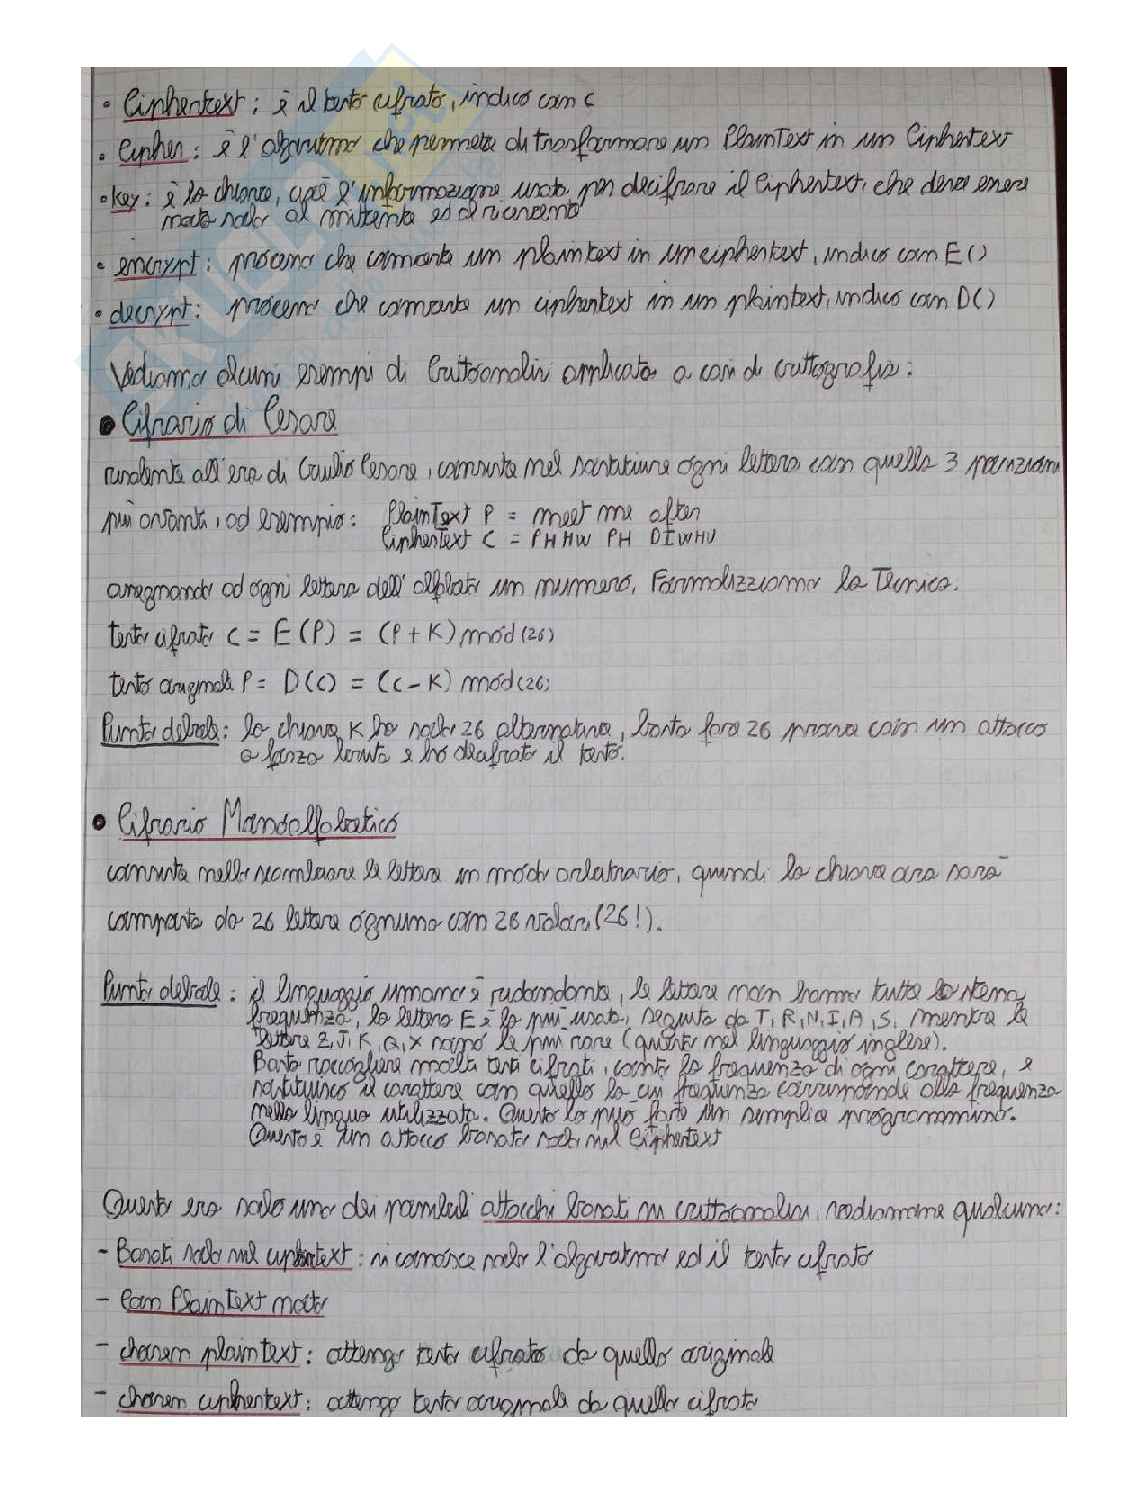 • Ciphertext: è il testo cifrato, indico con c
• Cipher: è l'algoritmo che permette di trasformare un PlainText in un Ciphertext
• key: è la chiave, cioè l'informazione usata per decifrare il Ciphertext, che deve essere
nota solo al mittente ed al ricevente
• encrypt: processo che converte un plaintext in un ciphertext, indico con E()
• decrypt: processo che converte un ciphertext in un plaintext, indico con D()
Vediamo alcuni esempi di Crittoanalisi applicata a casi di crittografia:
• Cifrario di Cesare
risalente all'era di Giulio Cesare, consiste nel sostituire ogni lettera con quella 3 posizioni
più avanti, ad esempio: PlainText P = meet me after
Ciphertext C = PHHW PH DIWHU
assegnando ad ogni lettera dell'alfabeto un numero, Formalizziamo la Tecnica.
testo cifrato C = E(P) = (P + K) mod(26)
testo originale P = D(C) = (C - K) mod(26)
Punto debole: la chiave K ha solo 26 alternative, basta fare 26 prove con un attacco
a forza bruta e ho decifrato il testo.
• Cifrario Monoalfabetico
consiste nello scambiare le lettere in modo arbitrario, quindi la chiave ora sarà
composta da 26 lettere ognuno con 26 valori (26!).
Punto debole: il linguaggio umano è ridondante, le lettere non hanno tutte la stessa
frequenza, la lettera E è la più usata, seguita da T, R, N, I, A, S, mentre le
lettere Z, J, K, Q, X sono le più rare (questo nel linguaggio inglese).
Basta raccogliere molti testi cifrati, conto la frequenza di ogni carattere, e
sostituisco il carattere con quello la cui frequenza corrisponde alla frequenza
nella lingua utilizzata. Questo lo può fare un semplice programmino.
Questo è un attacco basato solo sul Ciphertext
Questo era solo uno dei possibili attacchi basati su crittoanalisi, vediamone qualcuno:
- Basati solo sul ciphertext: si conosce solo l'algoritmo ed il testo cifrato
- Con PlainText noto
- chosen plaintext: ottengo testo cifrato da quello originale
- chosen ciphertext: ottengo testo originale da quello cifrato